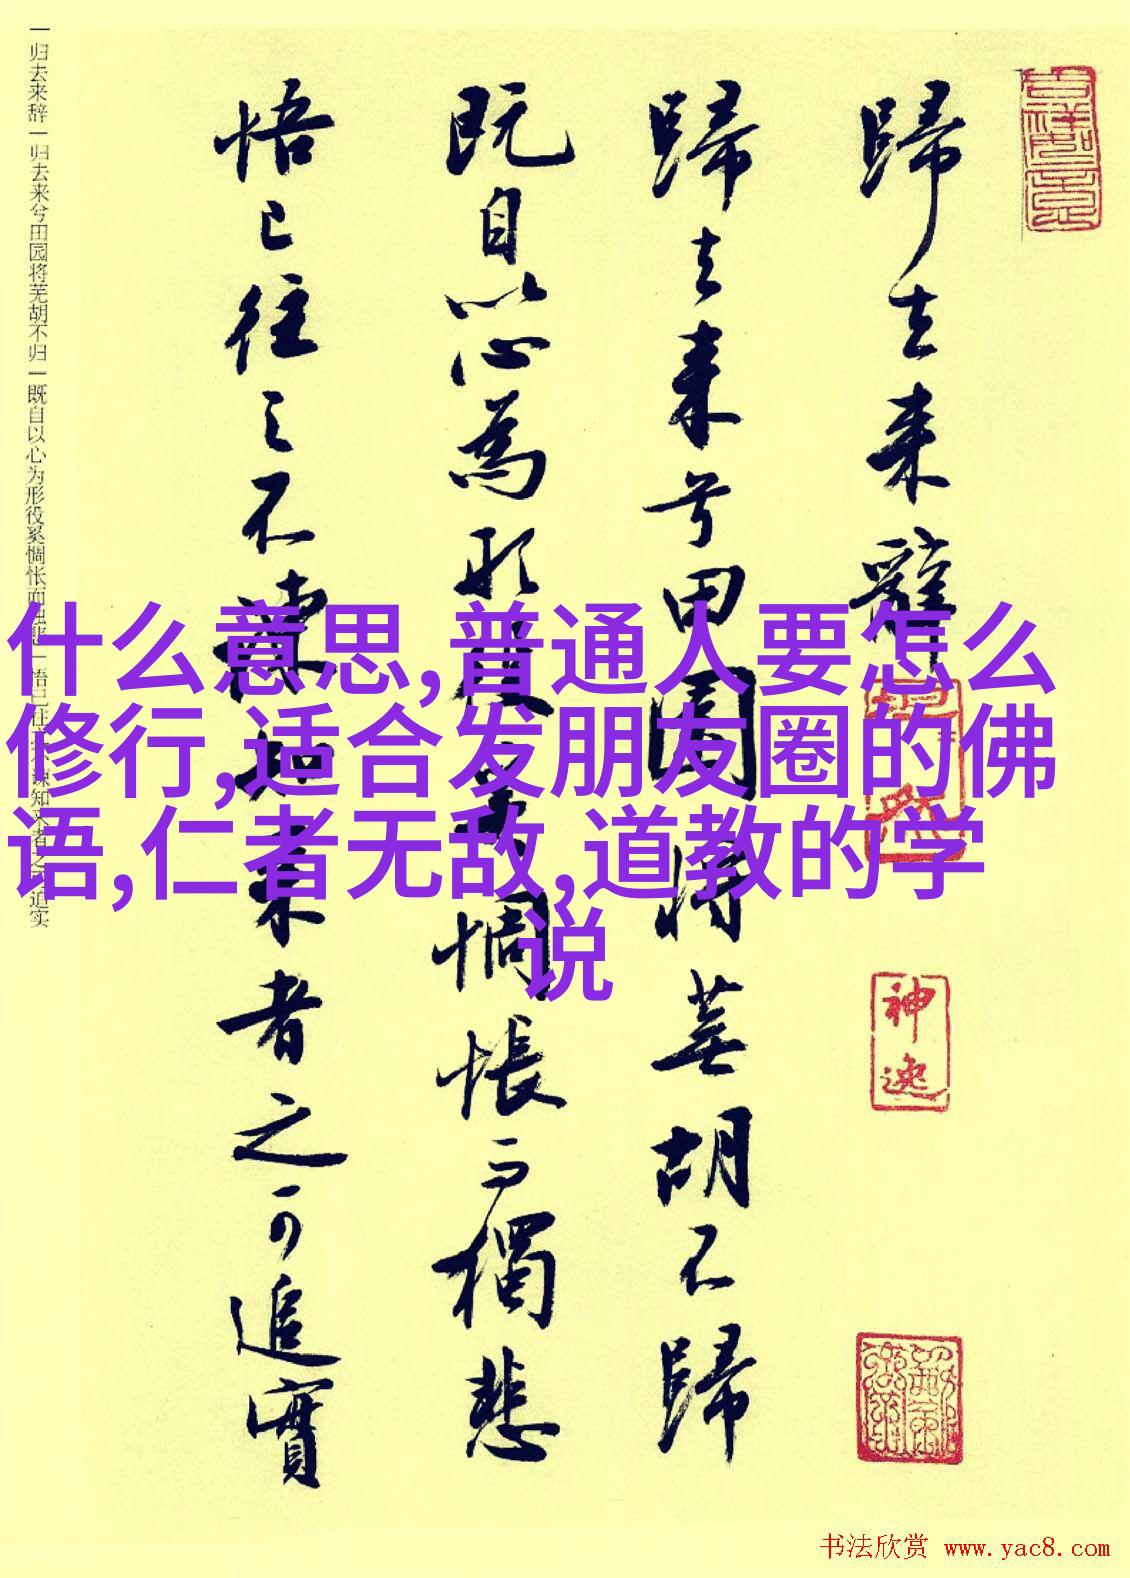 歸去来辭
歸去来兮田園将蕪胡不歸
既自以心為形役奚惆悵而獨悲
悟已往之不諫知来者之可追實
神逸
一归去来辞一归去来兮田园将芜胡不归一既自以心为形役奚惆怅而独悲一悟已往之不谏知来者之可追实
什么意思,普通人要怎么
修行,适合发朋友圈的佛
语,仁者无敌,道教的学
说
书法欣赏 www.yac8.com